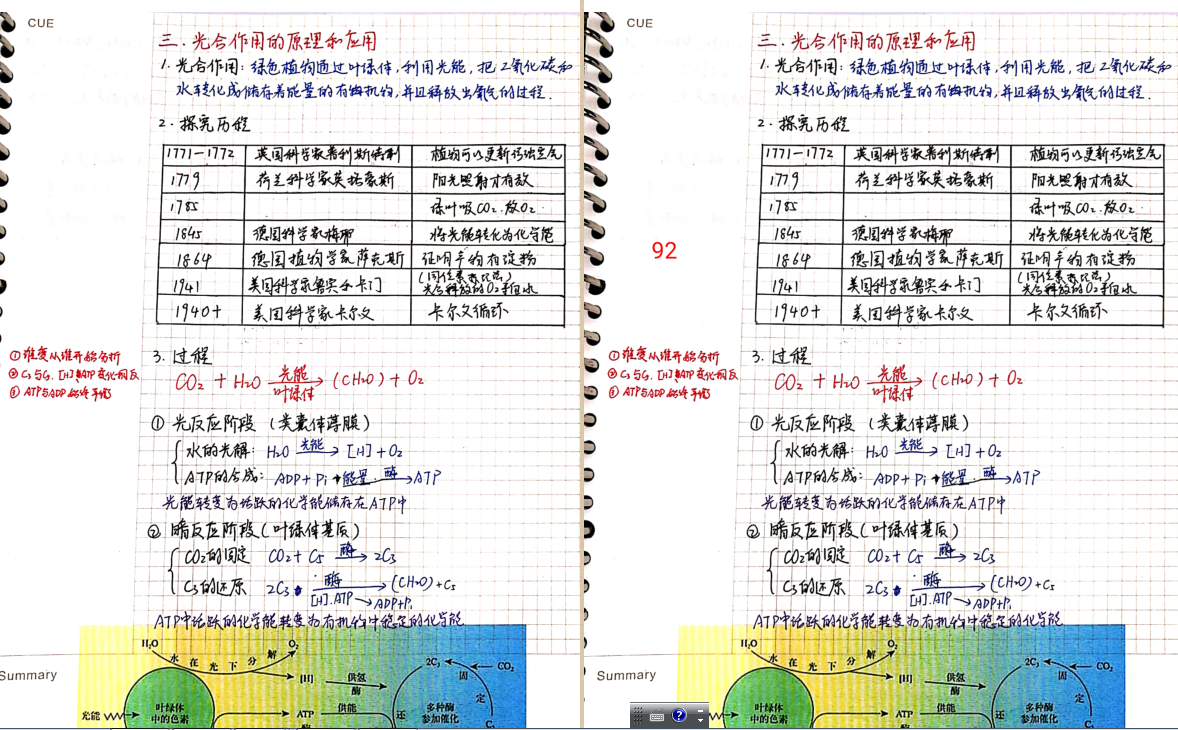 CUE
三.光合作用的原理和应用
1.光合作用:绿色植物通过叶绿体,利用光能,把二氧化碳和
水转化成储存着能量的有机物,并且释放出氧气的过程.
2.探究历程
1771—1772 英国科学家普利斯特利 植物可以更新污浊空气
1779 荷兰科学家英格豪斯 阳光照射才有效
1785 绿叶吸CO₂.放O₂
1845 德国科学家梅耶 将光能转化为化学能
1864 德国植物学家萨克斯 证明产物有淀粉
1941 美国科学家鲁宾和卡门 (同位素标记法)
光合释放的O₂来自水
1940+ 美国科学家卡尔文 卡尔文循环
3.过程
CO₂ + H₂O 光能 叶绿体 → (CH₂O) + O₂
①谁变从谁开始分析
②C₃与C₅,[H]与ATP变化相反
③ATP与ADP
①光反应阶段(类囊体薄膜)
水的光解: H₂O 光能→ [H]+O₂
ATP的合成: ADP+Pi+能量 酶→ATP
光能转变为活跃的化学能储存在ATP中
②暗反应阶段(叶绿体基质)
CO₂的固定 CO₂+C₅ 酶→ 2C₃
C₃的还原 2C₃ 酶 [H].ATP→ADP+Pi → (CH₂O)+C₅
ATP中活跃的化学能转变为有机物中稳定的化学能
H₂O 水在光下分解 O₂
2C₃ CO₂
[H] 供氢 酶 固定
Summary
光能 叶绿体中的色素 ATP 供能 酶 还 多种酶参加催化 C₅
CUE
三.光合作用的原理和应用
1.光合作用:绿色植物通过叶绿体,利用光能,把二氧化碳和
水转化成储存着能量的有机物,并且释放出氧气的过程.
2.探究历程
1771—1772 英国科学家普利斯特利 植物可以更新污浊空气
1779 荷兰科学家英格豪斯 阳光照射才有效
1785 绿叶吸CO₂.放O₂
1845 德国科学家梅耶 将光能转化为化学能
92
1864 德国植物学家萨克斯 证明产物有淀粉
1941 美国科学家鲁宾和卡门 (同位素标记法)
光合释放的O₂来自水
1940+ 美国科学家卡尔文 卡尔文循环
3.过程
CO₂ + H₂O 光能 叶绿体 → (CH₂O) + O₂
①谁变从谁开始分析
②C₃与C₅,[H]与ATP变化相反
③ATP与ADP
①光反应阶段(类囊体薄膜)
水的光解: H₂O 光能→ [H]+O₂
ATP的合成: ADP+Pi+能量 酶→ATP
光能转变为活跃的化学能储存在ATP中
②暗反应阶段(叶绿体基质)
CO₂的固定 CO₂+C₅ 酶→ 2C₃
C₃的还原 2C₃ 酶 [H].ATP→ADP+Pi → (CH₂O)+C₅
ATP中活跃的化学能转变为有机物中稳定的化学能
H₂O 水在光下分解 O₂
2C₃ CO₂
[H] 供氢 酶 固定
Summary
叶绿体中的色素 ATP 供能 酶 还 多种酶参加催化 C₅